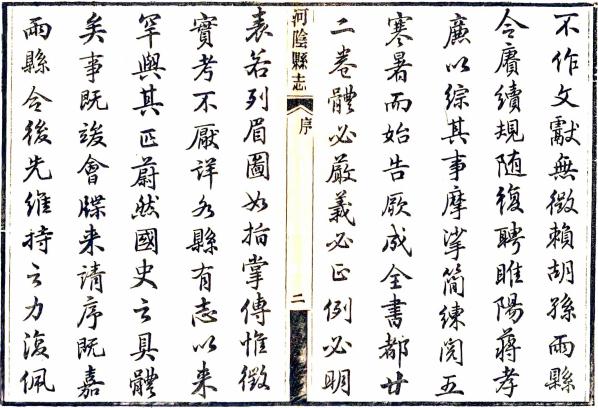 不作文獻無徵賴胡孫兩縣
令賡續規随復聘睢陽蔣孝
廉以綜其事摩挲簡練閱五
寒暑而始告厥成全書都廿
二卷體必嚴義必正例必明
河陰縣志
序
二
表若列眉圖如指掌傳惟徵
實考不厭詳為縣有志以来
罕與其匹蔚然國史之具體
矣事既竣會牒来請序既嘉
兩縣令後先維持之力復佩